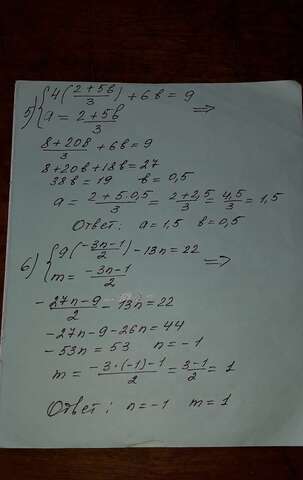 5) { 4(2+5в/3)+6в=9
a=2+5в/3 =>
8+20в/3+6в=9
8+20в+18в=27
38в=19 в=0,5
a=2+5·0,5/3=2+2,5/3=4,5/3=1,5
Ответ: a=1,5 в=0,5
6) { 9(-3n-1/2)-13n=22
m=-3n-1/2 =>
-27n-9/2-13n=22
-27n-9-26n=44
-53n=53 n=-1
m=-3·(-1)-1/2=3-1/2=1
Ответ: n=-1 m=1